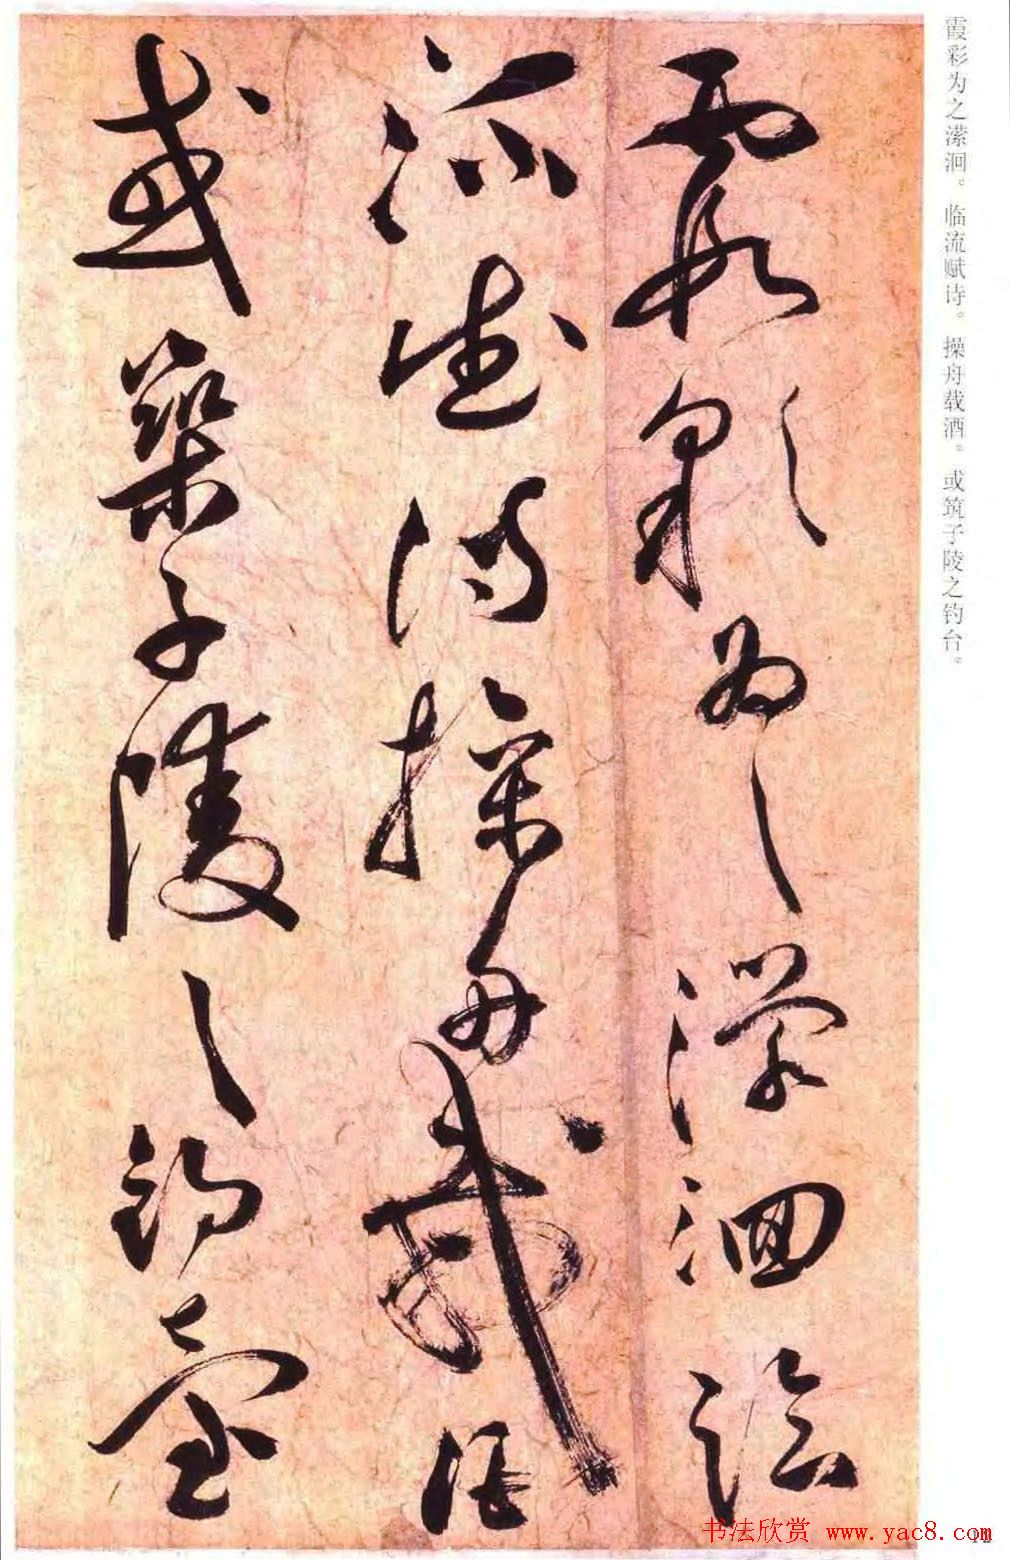 霞彩为之潆洄。临流赋诗。操舟载酒。或筑子陵之钓台。
霞彩為之濚洄臨
流賦詩操舟載酒
或築子陵之釣臺
书法欣赏 www.yac8.com